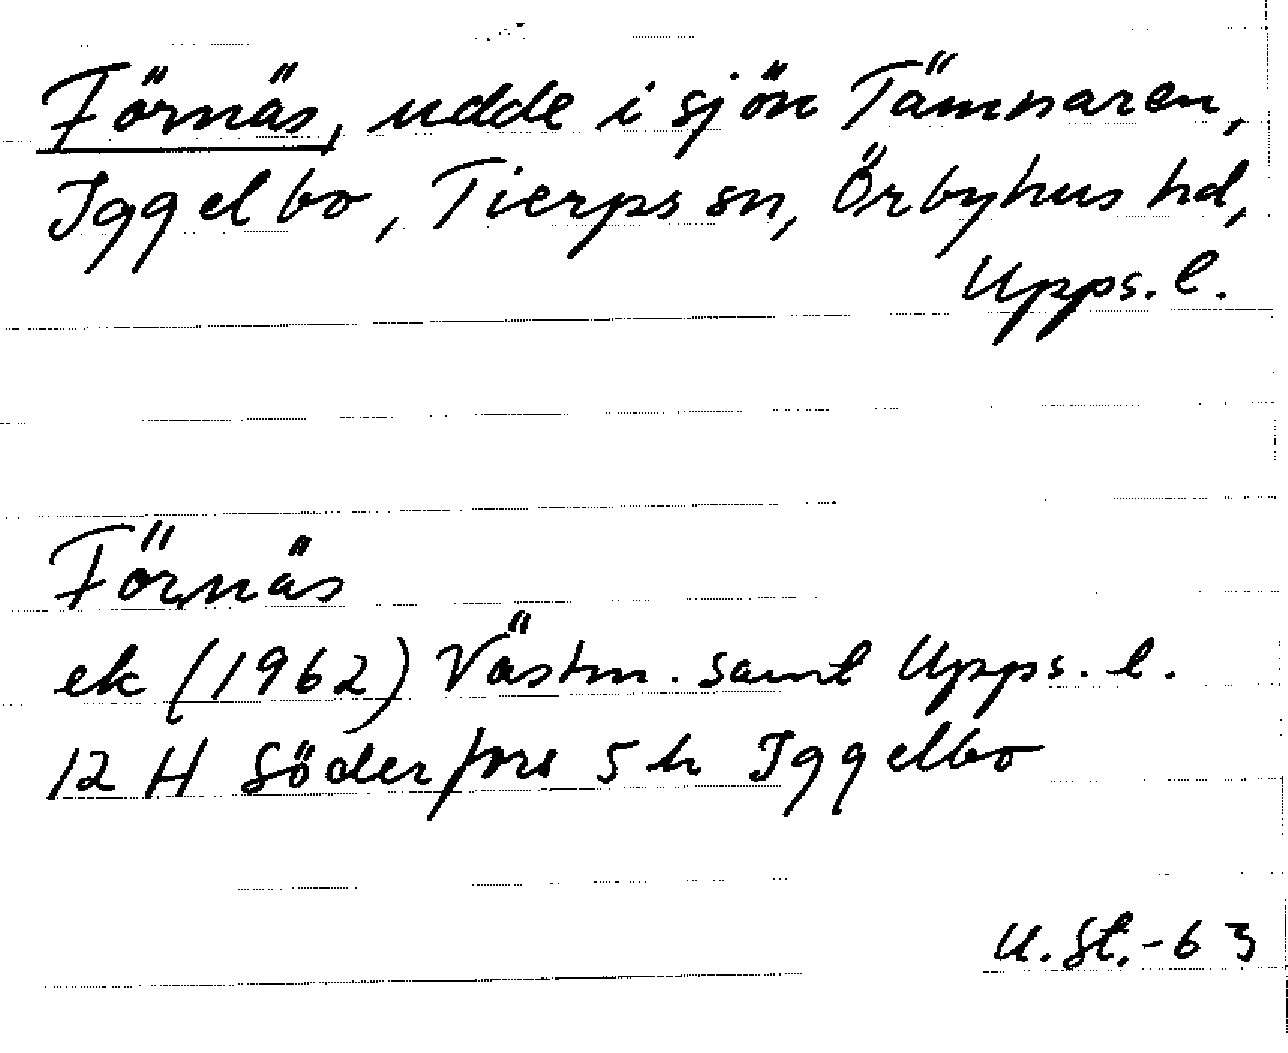 Förnäs, udde i sjön Tämnaren,
Iggelbo, Tierps sn, Örbyhus hd,
Upps. l.
Förnäs
ek (1962) Västm. samt Upps. l.
12 H Söderfors 5 h Iggelbo
U. St. -63